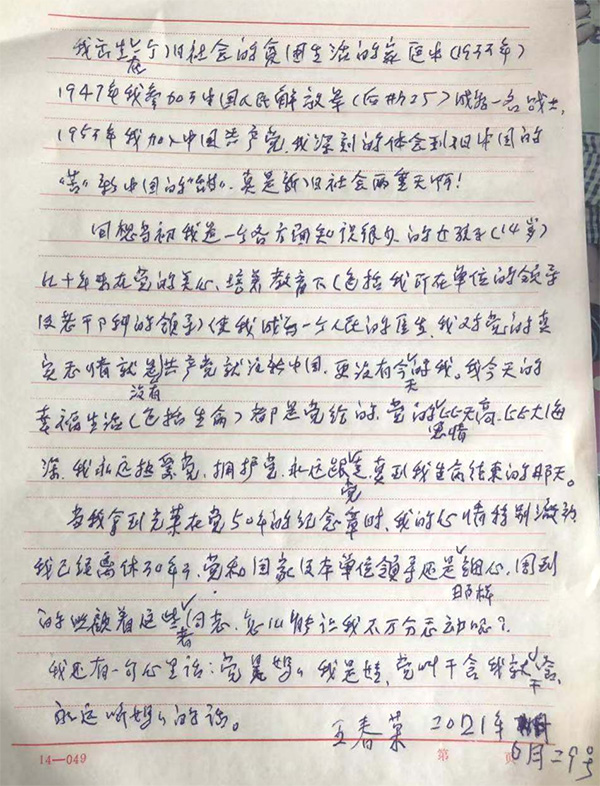 我出生在一个旧社会的贫困生活的家庭中(1933年)
1947年我参加了中国人民解放军(后勤25)成为一名战士,
1955年我加入中国共产党,我深刻的体会到旧中国的
"苦"新中国的"甜",真是新旧社会两重天啊!
回想当初我是一个各方面知识很少的女孩子(14岁)
几十年来在党的关心、培养教育下(包括我所在单位的领导
及老干部科的领导)使我成为一个人民的医生,我对党的真
实感情就是没有共产党就没有新中国,更没有今天的我。我今天的
幸福生活(包括生命)都是党给的,党的恩情比天高、比大海
深,我永远热爱党,拥护党,永远跟党走,直到我生命结束的那天。
当我拿到光荣在党50年的纪念章时,我的心情特别激动
我已经离休30年了,党和国家及本单位领导还是那样细心,周到
的照顾着这些老同志,怎么能让我不万分感动呢?
我还有一句心里话:党是妈妈我是娃,党叫干啥我就干啥,
永远听妈妈的话。
王春荣 2021年
6月29号
14—049 第 页